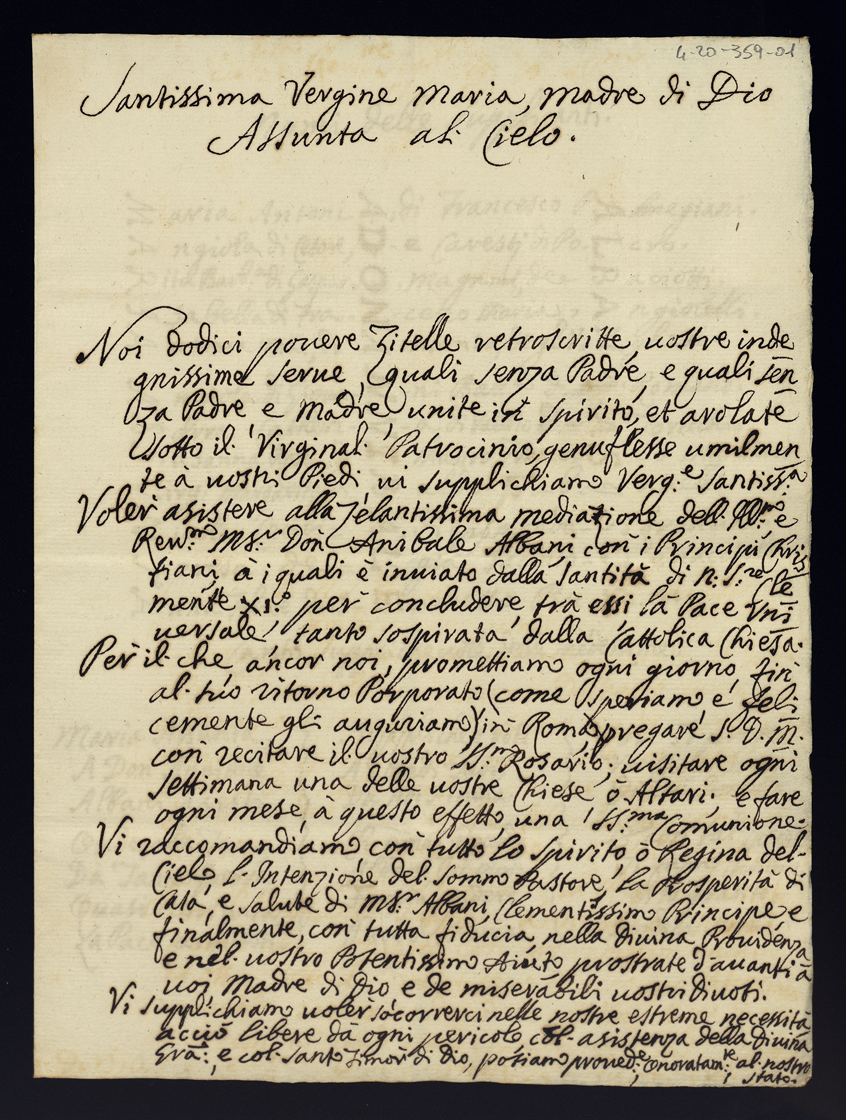 4-20-359-01
Santissima Vergine Maria, Madre di Dio
Assunta al Cielo.
Noi dodici povere Zitelle retroscritte, vostre inde
gnissime serve, quali senza Padre, e quali sen
za Padre e Madre unite in spirito, et avolate
sotto il Virginal Patrocinio, genuflesse umilmen
te à vostri Piedi vi supplichiamo Verg.e Santiss.a
Voler asistere alla zelantissima mediazione dell Ill.mo e
Rev.mo Ms.r Don Anibale Albani con i Principi Chris
tiani, à i quali è inviato dalla Santità di N. S.re Cle
mente XI.o per concludere trà essi la Pace Uni
versale, tanto sospirata dalla Cattolica Chiesa.
Per il che ancor noi, promettiamo ogni giorno, fin
al suo ritorno Porporato (come speriamo e feli
cemente gli auguriamo) in Roma, pregare S. D. M.
con recitare il vostro SS.mo Rosario; visitare ogni
settimana una delle vostre Chiese ò Altari; e fare
ogni mese, à questo effetto, una SS.ma Comunione.
Vi raccomandiamo con tutto lo spirito, ò Regina del
Cielo l'Intenzione del Sommo Pastore, la Prosperità di
Casa, e salute di Ms.r Albani, Clementissimo Principe, e
finalmente, con tutta fiducia, nella Divina Providenza
e nel vostro Potentissimo Aiuto prostrate d'avanti à
voi Madre di Dio e de miserabili vostri divoti.
Vi supplichiamo voler socorrerci nelle nostre estreme necessità
acciò libere dà ogni pericolo, col asistenza della Divina
Gra:, e col Santo Timor di Dio, potiamo proved.e onoratam.te al nostro
stato.